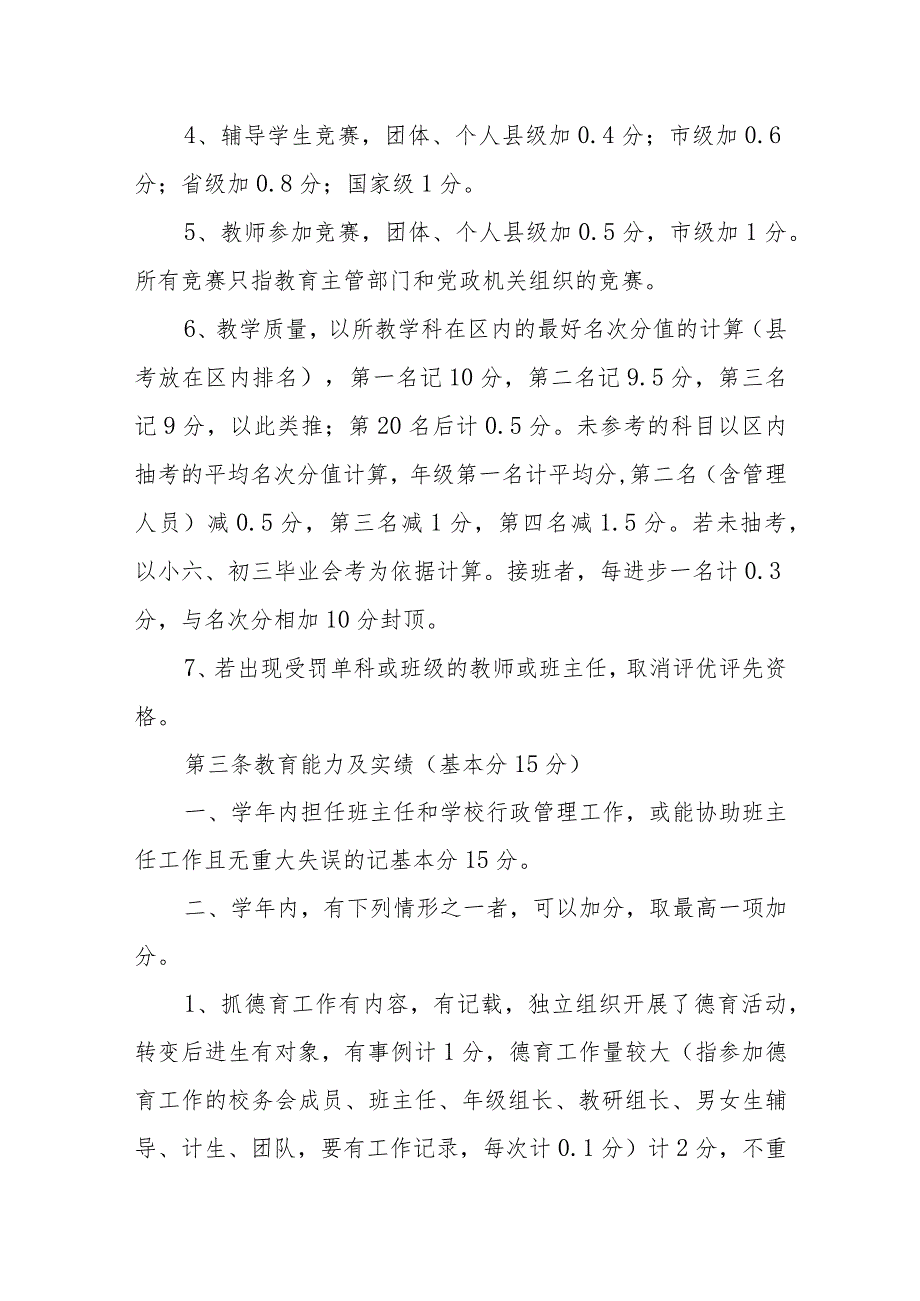 4、辅导学生竞赛，团体、个人县级加0.4分；市级加0.6
分；省级加0.8分；国家级1分。
5、教师参加竞赛，团体、个人县级加0.5分，市级加1分。
所有竞赛只指教育主管部门和党政机关组织的竞赛。
6、教学质量，以所教学科在区内的最好名次分值的计算（县
考放在区内排名），第一名记10分，第二名记9.5分，第三名
记9分，以此类推；第20名后计0.5分。未参考的科目以区内
抽考的平均名次分值计算，年级第一名计平均分,第二名（含管理
人员）减0.5分，第三名减1分，第四名减1.5分。若未抽考，
以小六、初三毕业会考为依据计算。接班者，每进步一名计0.3
分，与名次分相加10分封顶。
7、若出现受罚单科或班级的教师或班主任，取消评优评先资
格。
第三条教育能力及实绩（基本分15分）
一、学年内担任班主任和学校行政管理工作，或能协助班主
任工作且无重大失误的记基本分15分。
二、学年内，有下列情形之一者，可以加分，取最高一项加
分。
1、抓德育工作有内容，有记载，独立组织开展了德育活动，
转变后进生有对象，有事例计1分，德育工作量较大（指参加德
育工作的校务会成员、班主任、年级组长、教研组长、男女生辅
导、计生、团队，要有工作记录，每次计0.1分）计2分，不重